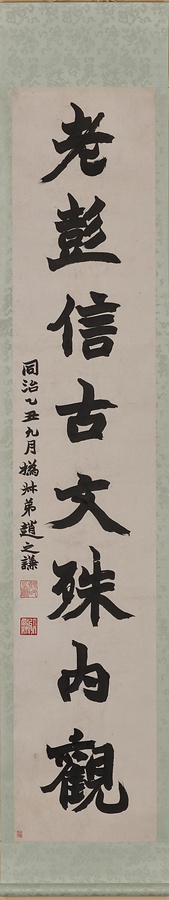 老彭信古文殊內觀
同治乙丑九月撝叔弟趙之謙